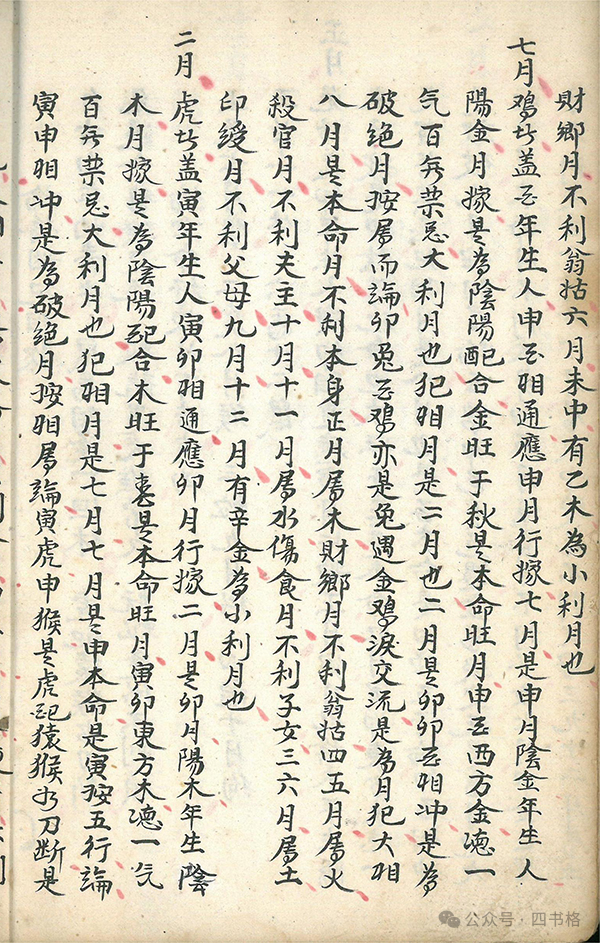 財鄉月不利翁姑六月未中有乙木為小利月也
七月鸡者盖酉年生人申酉相通應申月行嫁七月是申月陰金年生人
陽金月嫁是為陰陽配合金旺于秋是本命旺月申酉西方金德一
气百無禁忌大利月也犯相月是二月也二月是卯卯酉相冲是為
破絶月按屬而論卯兔酉鸡亦是兔遇金鸡淚交流是為月犯大相
八月是本命月不利本身正月屬木財鄉月不利翁姑四五月屬火
殺官月不利夫主十月十一月屬水傷食月不利子女三六月屬土
印綬月不利父母九月十二月有辛金為小利月也
二月虎者盖寅年生人寅卯相通應卯月行嫁二月是卯月陽木年生陰
木月嫁是為陰陽配合木旺于春是本命旺月寅卯東方木德一气
百無禁忌大利月也犯相月是七月七月是申本命是寅按五行論
寅申相冲是為破絶月按相屬論寅虎申猴是虎配猿猴如刀断是
公众号·四书格